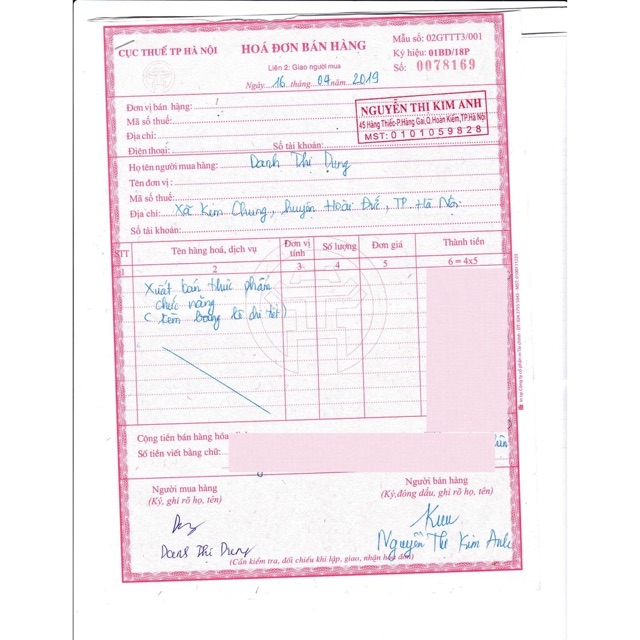 CỤC THUẾ TP HÀ NỘI
HOÁ ĐƠN BÁN HÀNG
Liên 2: Giao người mua
Ngày 16 tháng 09 năm 2019
Mẫu số: 02GTTT3/001
Ký hiệu: 01BD/18P
Số: 0078169
Đơn vị bán hàng:
Mã số thuế:
Địa chỉ:
Điện thoại: Số tài khoản:
NGUYỄN THỊ KIM ANH
45 Hàng Thiếc-P.Hàng Gai,Q.Hoàn Kiếm,TP.Hà Nội
MST: 0101059828
Họ tên người mua hàng: Danh Thị Dung
Tên đơn vị:
Mã số thuế:
Địa chỉ: Xã Kim Chung, huyện Hoài Đức, TP. Hà Nội
Số tài khoản:
STT Tên hàng hoá, dịch vụ Đơn vị tính Số lượng Đơn giá Thành tiền
1 2 3 4 5 6 = 4x5
Xuất bán thực phẩm
chức năng
( kèm bảng kê chi tiết)
Cộng tiền bán hàng hóa
Số tiền viết bằng chữ:
Người mua hàng
(Ký, ghi rõ họ, tên)
Người bán hàng
(Ký,đóng dấu, ghi rõ họ, tên)
Danh Thị Dung
Nguyễn Thị Kim Anh
(Cần kiểm tra, đối chiếu khi lập, giao, nhận hoá đơn)